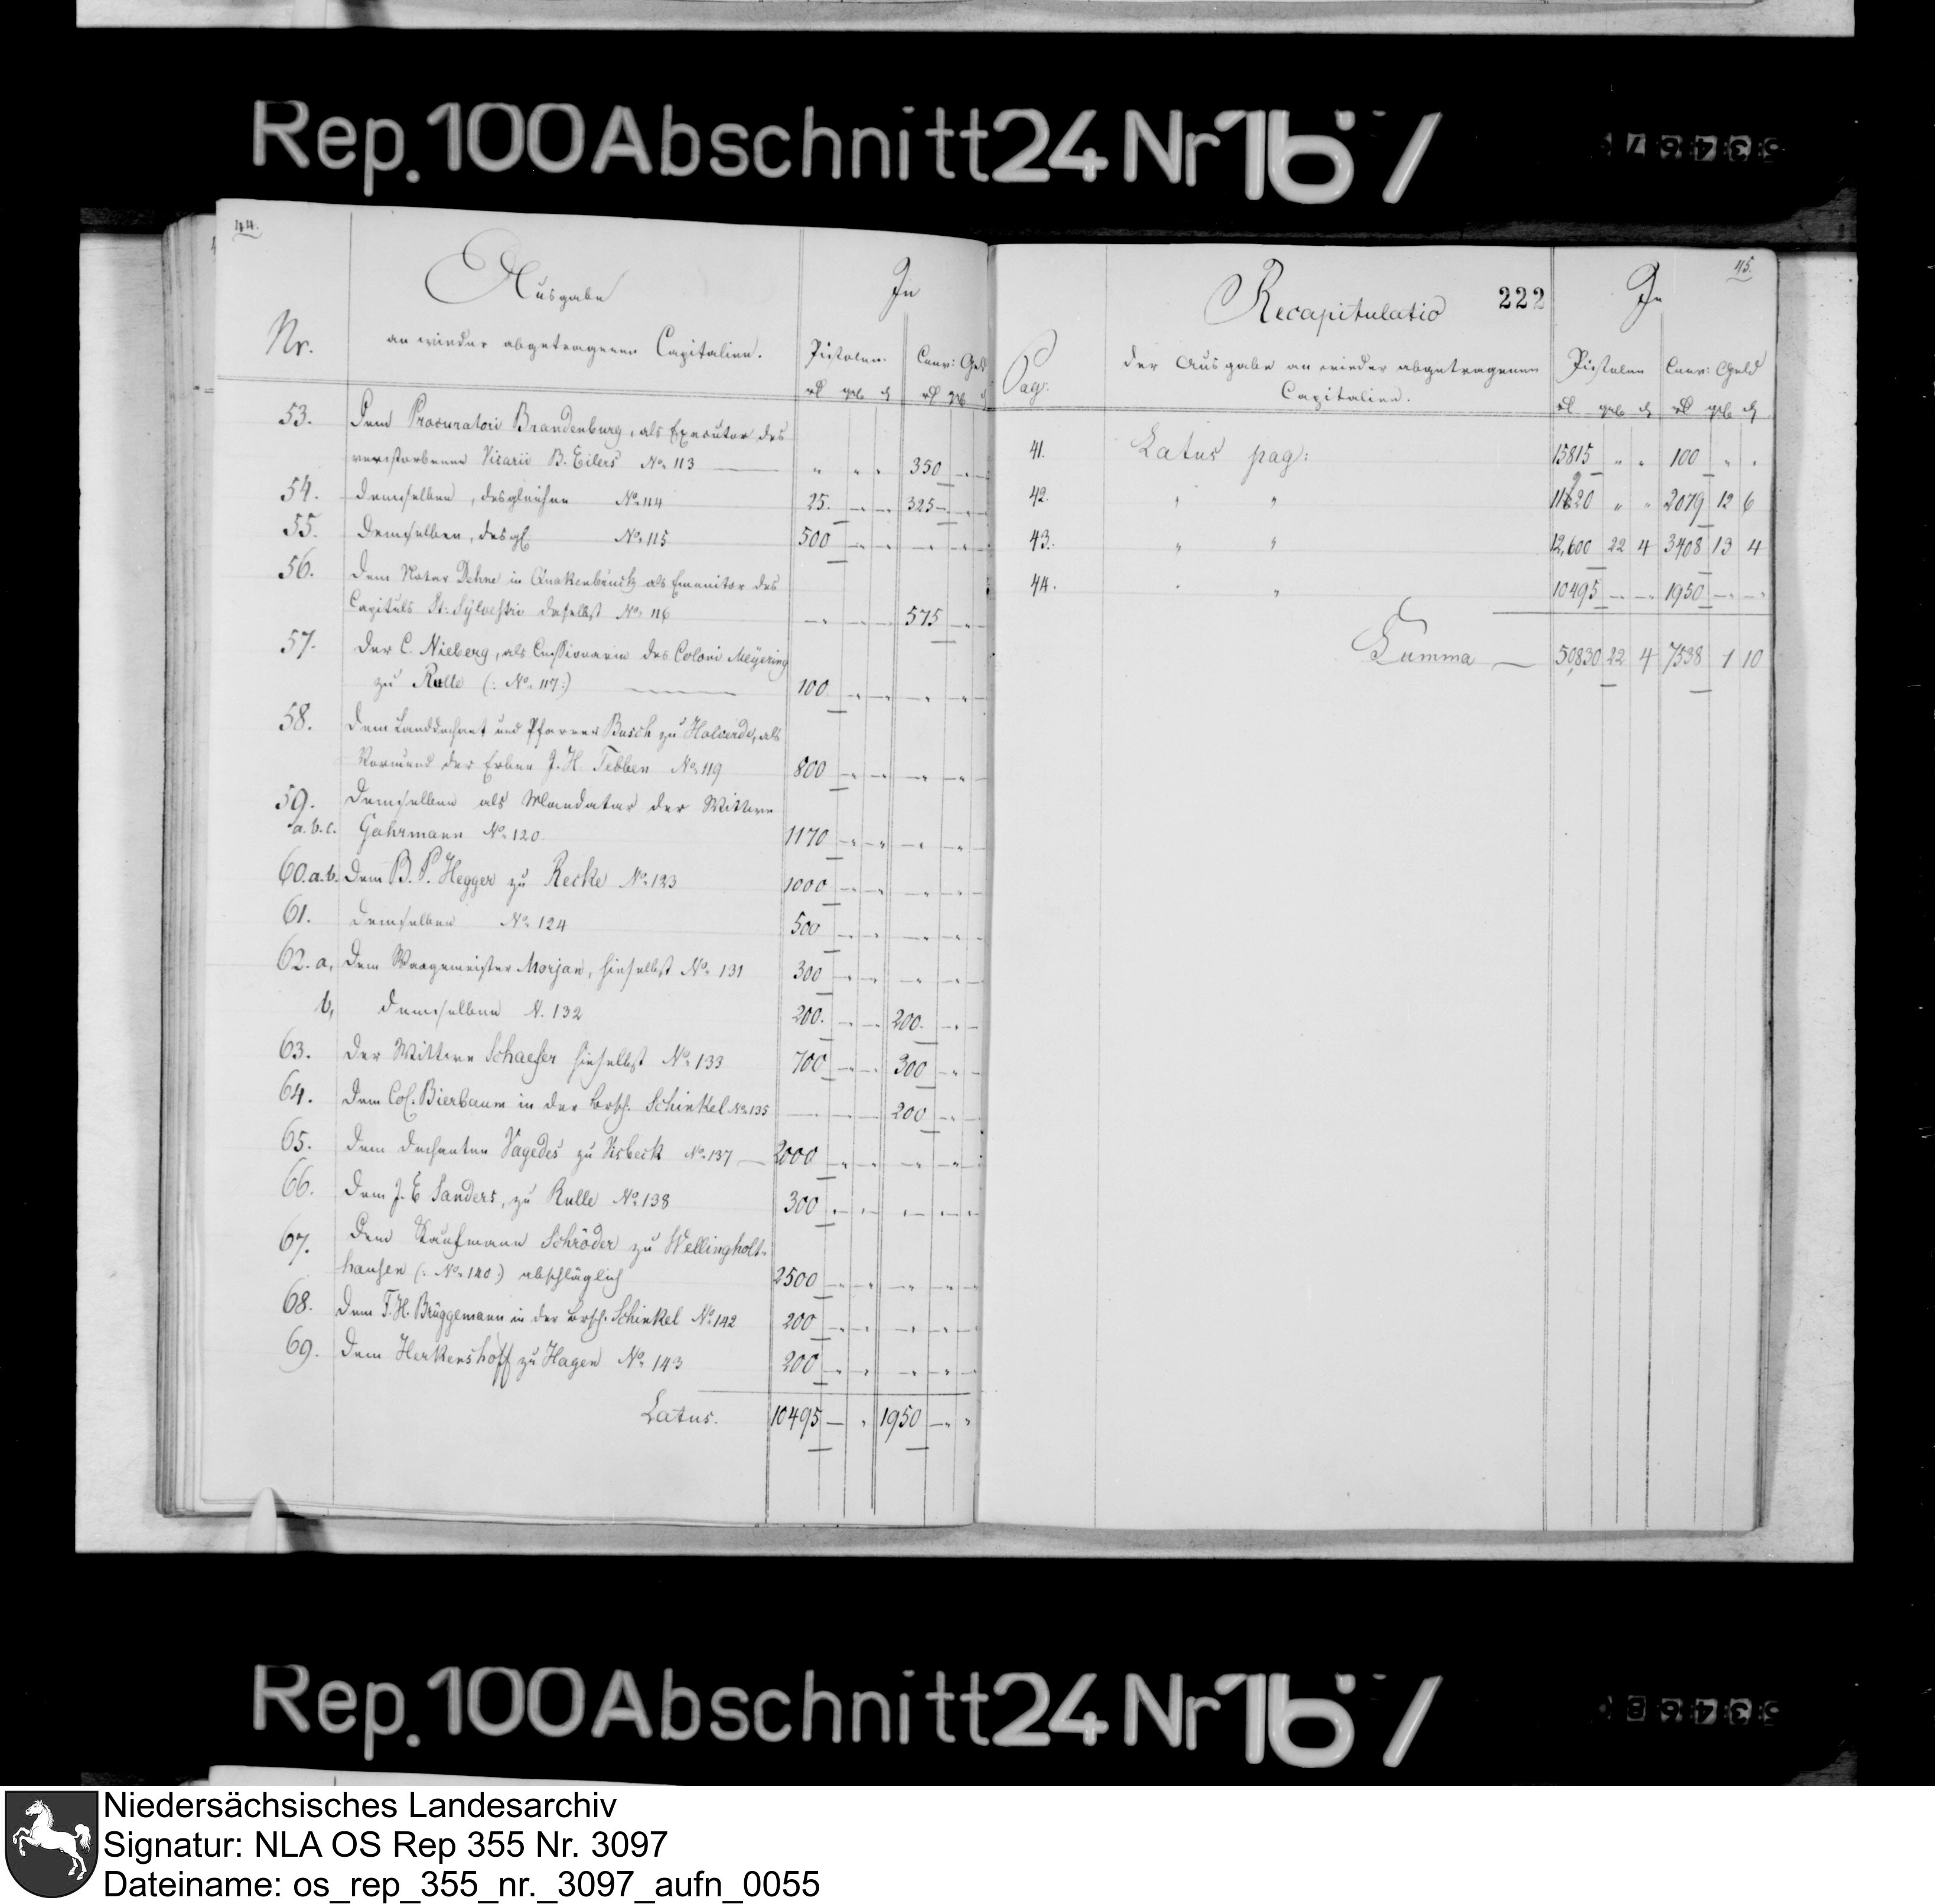 Rep. 100 Abschnitt 24 Nr 167
44.
Ausgabe
In
Nr.
an wieder abgetragenen Capitalien.
Pistolen.
Conv: Geld
53.
Dem Procuratori Brandenburg, als Executor des
verstorbenen Vicarii B. Eilers No. 113 " " " 350
54. demselben, desgleichen No. 114 25. 325
55. demselben, desgl. No. 115 500
56. Dem Notar Dehne in Quakenbrück als Emonitor des
Capituls St: Sylvestri daselbst No. 116 575
57. Der C. Nieberg, als Cessionarin des Coloni Meyering
zu Rulle (: No. 117:) 100
58. Dem Landdechant und Pfarrer Busch zu Halverde, als
Vormund der Erben J. H. Tebben No. 119 800
59. Demselben als Mandatar der Wittwe
a. b. c. Gahrmann No. 120 1170
60. a. b. Dem B. P. Hegger zu Recke No. 123 1000
61. demselben No. 124 500
62. a, Dem Waagemeister Morjan, hieselbst No. 131 300
b, demselben N. 132 200. 200.
63. Der Wittwe Schaefer hieselbst No. 133 700 300
64. Dem Col. Bierbaum in der Brsch. Schinkel No. 135 200
65. Dem dechanten Vagedes zu Visbeck No. 137 2000
66. Dem J. E Sanders, zu Rulle No. 138 300
67. Dem Kaufmann Schröder zu Wellingholt-
hausen (: No. 140:) abschläglich 2500
68. Dem F. H. Brüggemann in der Brsch. Schinkel No. 142 200
69. Dem Herkenshoff zu Hagen No. 143 200
Latus. 10495 1950
45.
222
Recapitulatio
In
Pag:
der Ausgabe an wieder abgetragenen
Capitalien.
Pistolen Conv: Geld
41. Latus pag: 15815 " " 100 " "
42. " " 11920 " " 2079 12 6
43. " " 12,600 22 4 3408 13 4
44. " " 10495 1950
Summa 50,830 22 4 7538 1 10
Rep. 100 Abschnitt 24 Nr 167
Niedersächsisches Landesarchiv
Signatur: NLA OS Rep 355 Nr. 3097
Dateiname: os_rep_355_nr._3097_aufn_0055